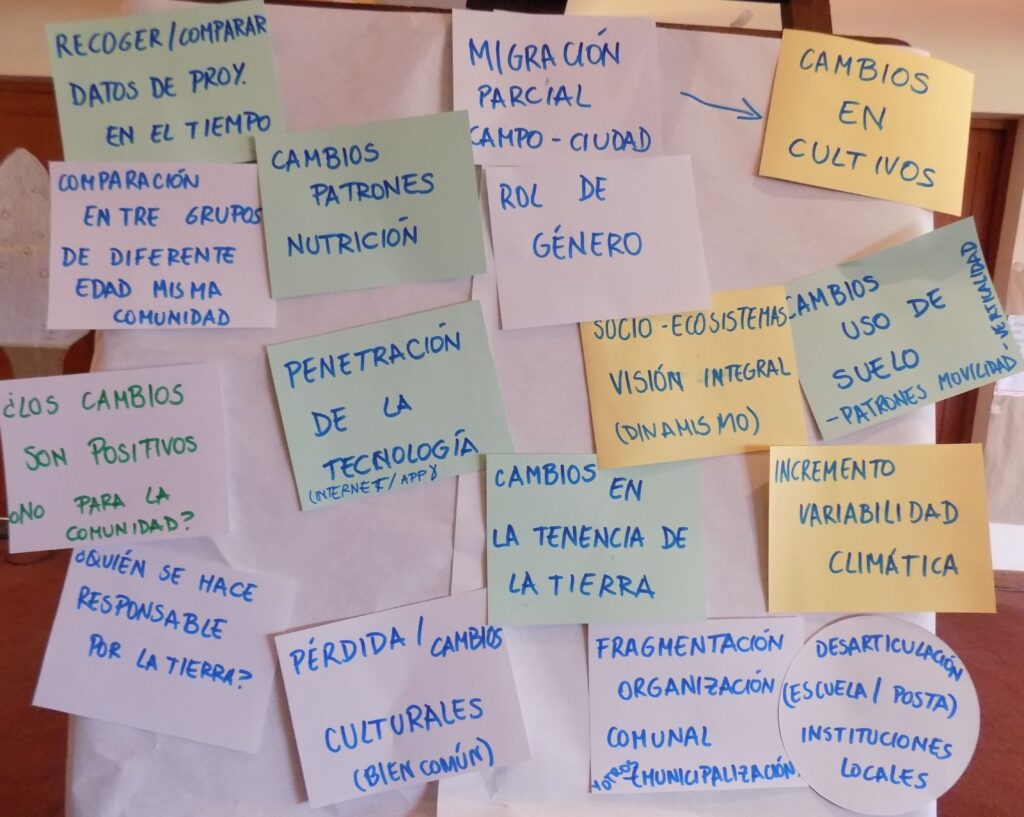 RECOGER/COMPARAR
DATOS DE PROY.
EN EL TIEMPO
MIGRACIÓN
PARCIAL
CAMPO - CIUDAD
CAMBIOS
EN
CULTIVOS
COMPARACIÓN
ENTRE GRUPOS
DE DIFERENTE
EDAD MISMA
COMUNIDAD
CAMBIOS
PATRONES
NUTRICIÓN
ROL DE
GÉNERO
SOCIO - ECOSISTEMAS
VISIÓN INTEGRAL
(DINAMISMO)
CAMBIOS
USO DE
SUELO
- PATRONES MOVILIDAD
- VERTICALIDAD
¿LOS CAMBIOS
SON POSITIVOS
O NO PARA LA
COMUNIDAD?
PENETRACIÓN
DE LA
TECNOLOGÍA
(INTERNET/APP)
CAMBIOS EN
LA TENENCIA DE
LA TIERRA
INCREMENTO
VARIABILIDAD
CLIMÁTICA
¿QUIÉN SE HACE
RESPONSABLE
POR LA TIERRA?
PÉRDIDA / CAMBIOS
CULTURALES
(BIEN COMÚN)
FRAGMENTACIÓN
ORGANIZACIÓN
COMUNAL
(MUNICIPALIZACIÓN)
DESARTICULACIÓN
(ESCUELA / POSTA)
INSTITUCIONES
LOCALES